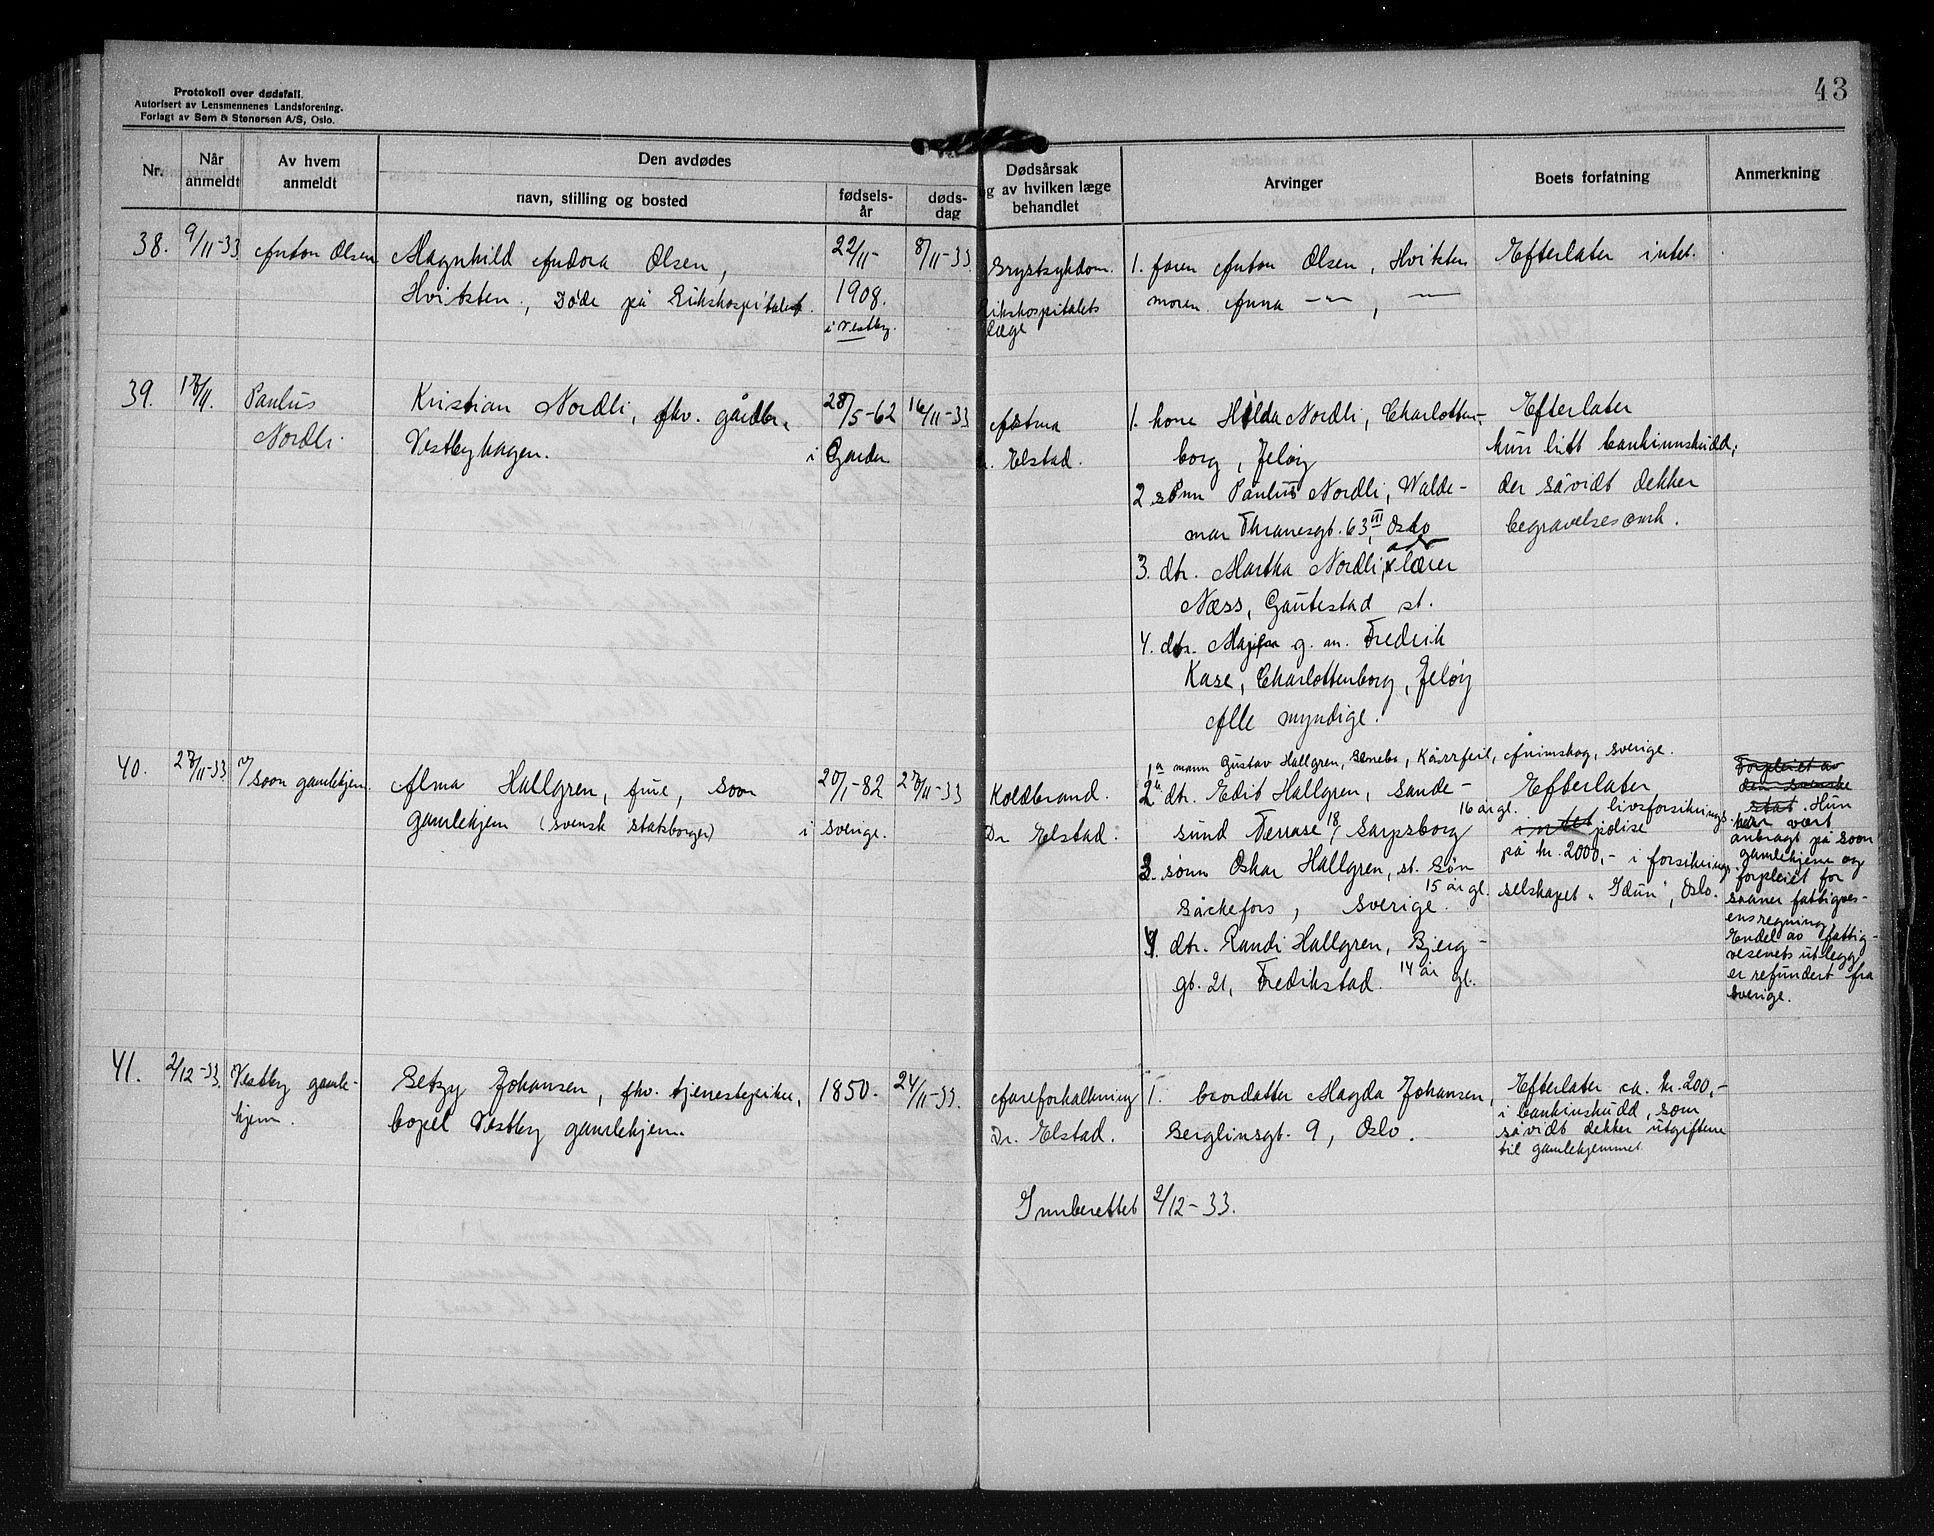 Protokoll over dødsfall.
Autorisert av Lensmennenes Landsforening.
Forlagt av Sem & Stenersen A/S, Oslo.
43
Nr.
Når anmeldt
Av hvem anmeldt
Den avdødes
navn, stilling og bosted
fødsels-år
døds-dag
Dødsårsak
og av hvilken læge
behandlet
Arvinger
Boets forfatning
Anmerkning
38.
9/11-33
Anton Olsen
Magnhild Andora Olsen,
Hvitsten, Døde på Rikshospitalet.
22/11-
1908.
i Vestby.
8/11-33
Brystsykdom.
Rikshospitalets
læge
1. faren Anton Olsen, Hvitsten
moren Anna -"-, -"-
Efterlater intet.
39.
Paulus
Nordli.
Kristian Nordli, fhv. gårdbr.
Vestbyhagen.
28/5-62
i Garder
16/11-33
Astma
Elstad.
1. kone Hilda Nordli, Charlotten-
borg, Jeløy
2 sønn Paulus Nordli, Walde-
mar Thranesgt. 63 III, Oslo
3. dtr. Martha Nordli, adr lærer
Næss, Gautestad st.
4. dtr. g. m. Fredrik
Kase, Charlottenborg, Jeløy
Alle myndige.
Efterlater
kun litt bankinnskudd,
der såvidt dekker
begravelsesomk.
40.
27/11-33
Soon gamlehjem.
Alma Hallgren, frue, Soon
gamlehjem (svensk statsborger)
20/1-82
i Sverige.
27/11-33
Koldbrand.
Dr Elstad.
1 a mann Gustav Hallgren, Animskog, Sverige.
2 b dtr. Edit Hallgren, Sande-
16 år gl.
sund Terrase 18, Sarpsborg
3. sønn Oskar Hallgren, st. Søn
15 år gl.
Bäckefors, Sverige.
4. dtr. Randi Hallgren, Bjerg-
gt. 21, Fredrikstad. 14 år gl.
Efterlater
livsforsikrings
intet polise
på kr. 2000,- i forsikrings
selskapet "Idun", Oslo.
Forpleiet av
den svenske
stat. Hun
har vært
anbragt på Soon
gamlehjem og
forpleiet for
Sooner fattigves-
ensregning
Endel av fattig-
vesenets utlegg
er refundert fra
Sverige.
41.
2/12-33.
Vestby gamle-
hjem.
Betzy Johansen, fhv. tjenestepike,
bopel Vestby gamlehjem.
1850.
24/11-33.
Areforkalkning
Dr. Elstad.
1. brordatter Magda Johansen,
Berglinsgt. 9, Oslo.
Efterlater ca. kr. 200,-
i bankinskudd, som
såvidt dekker utgiftene
til gamlehjemmet
Innberettet 2/12-33.